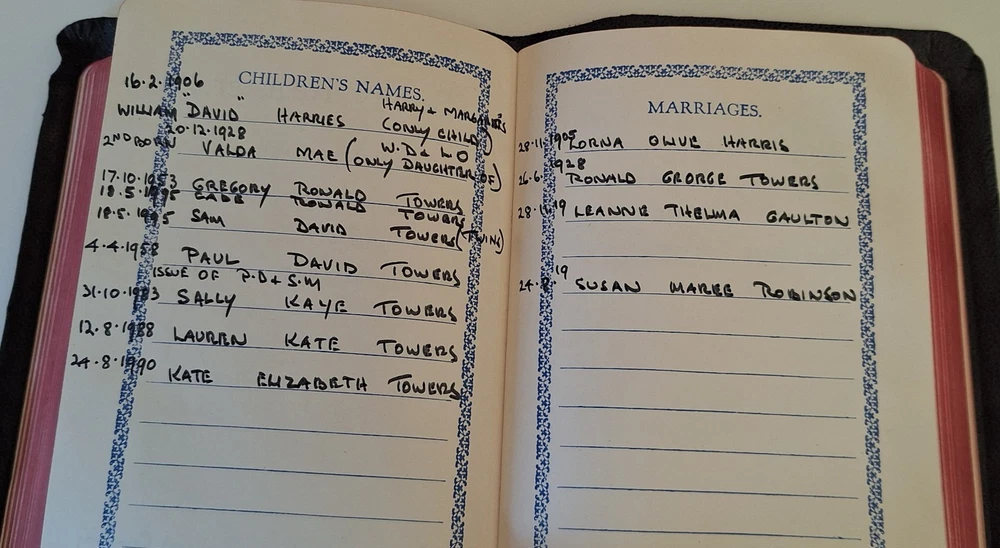 CHILDREN'S NAMES.
16.2.1906
HARRY & MARGARET'S
WILLIAM "DAVID" HARRIES (ONLY CHILD)
20.12.1928
W.D & LO
2ND BORN VALDA MAE (ONLY DAUGHTER OF)
17.10.1953 GREGORY RONALD TOWERS
18.5.1995 RONALD TOWERS
18.5.1995 SAM DAVID TOWERS (TWINS)
4.4.1958 PAUL DAVID TOWERS
ISSUE OF P.D & S.M
31.10.1983 SALLY KAYE TOWERS
12.8.1988 LAUREN KATE TOWERS
24.8.1990 KATE ELIZABETH TOWERS
MARRIAGES.
28.11.1905 LORNA OLIVE HARRIS
1928
26.6. RONALD GEORGE TOWERS
19 LEANNE THELMA GAULTON
19
SUSAN MAREE ROBINSON